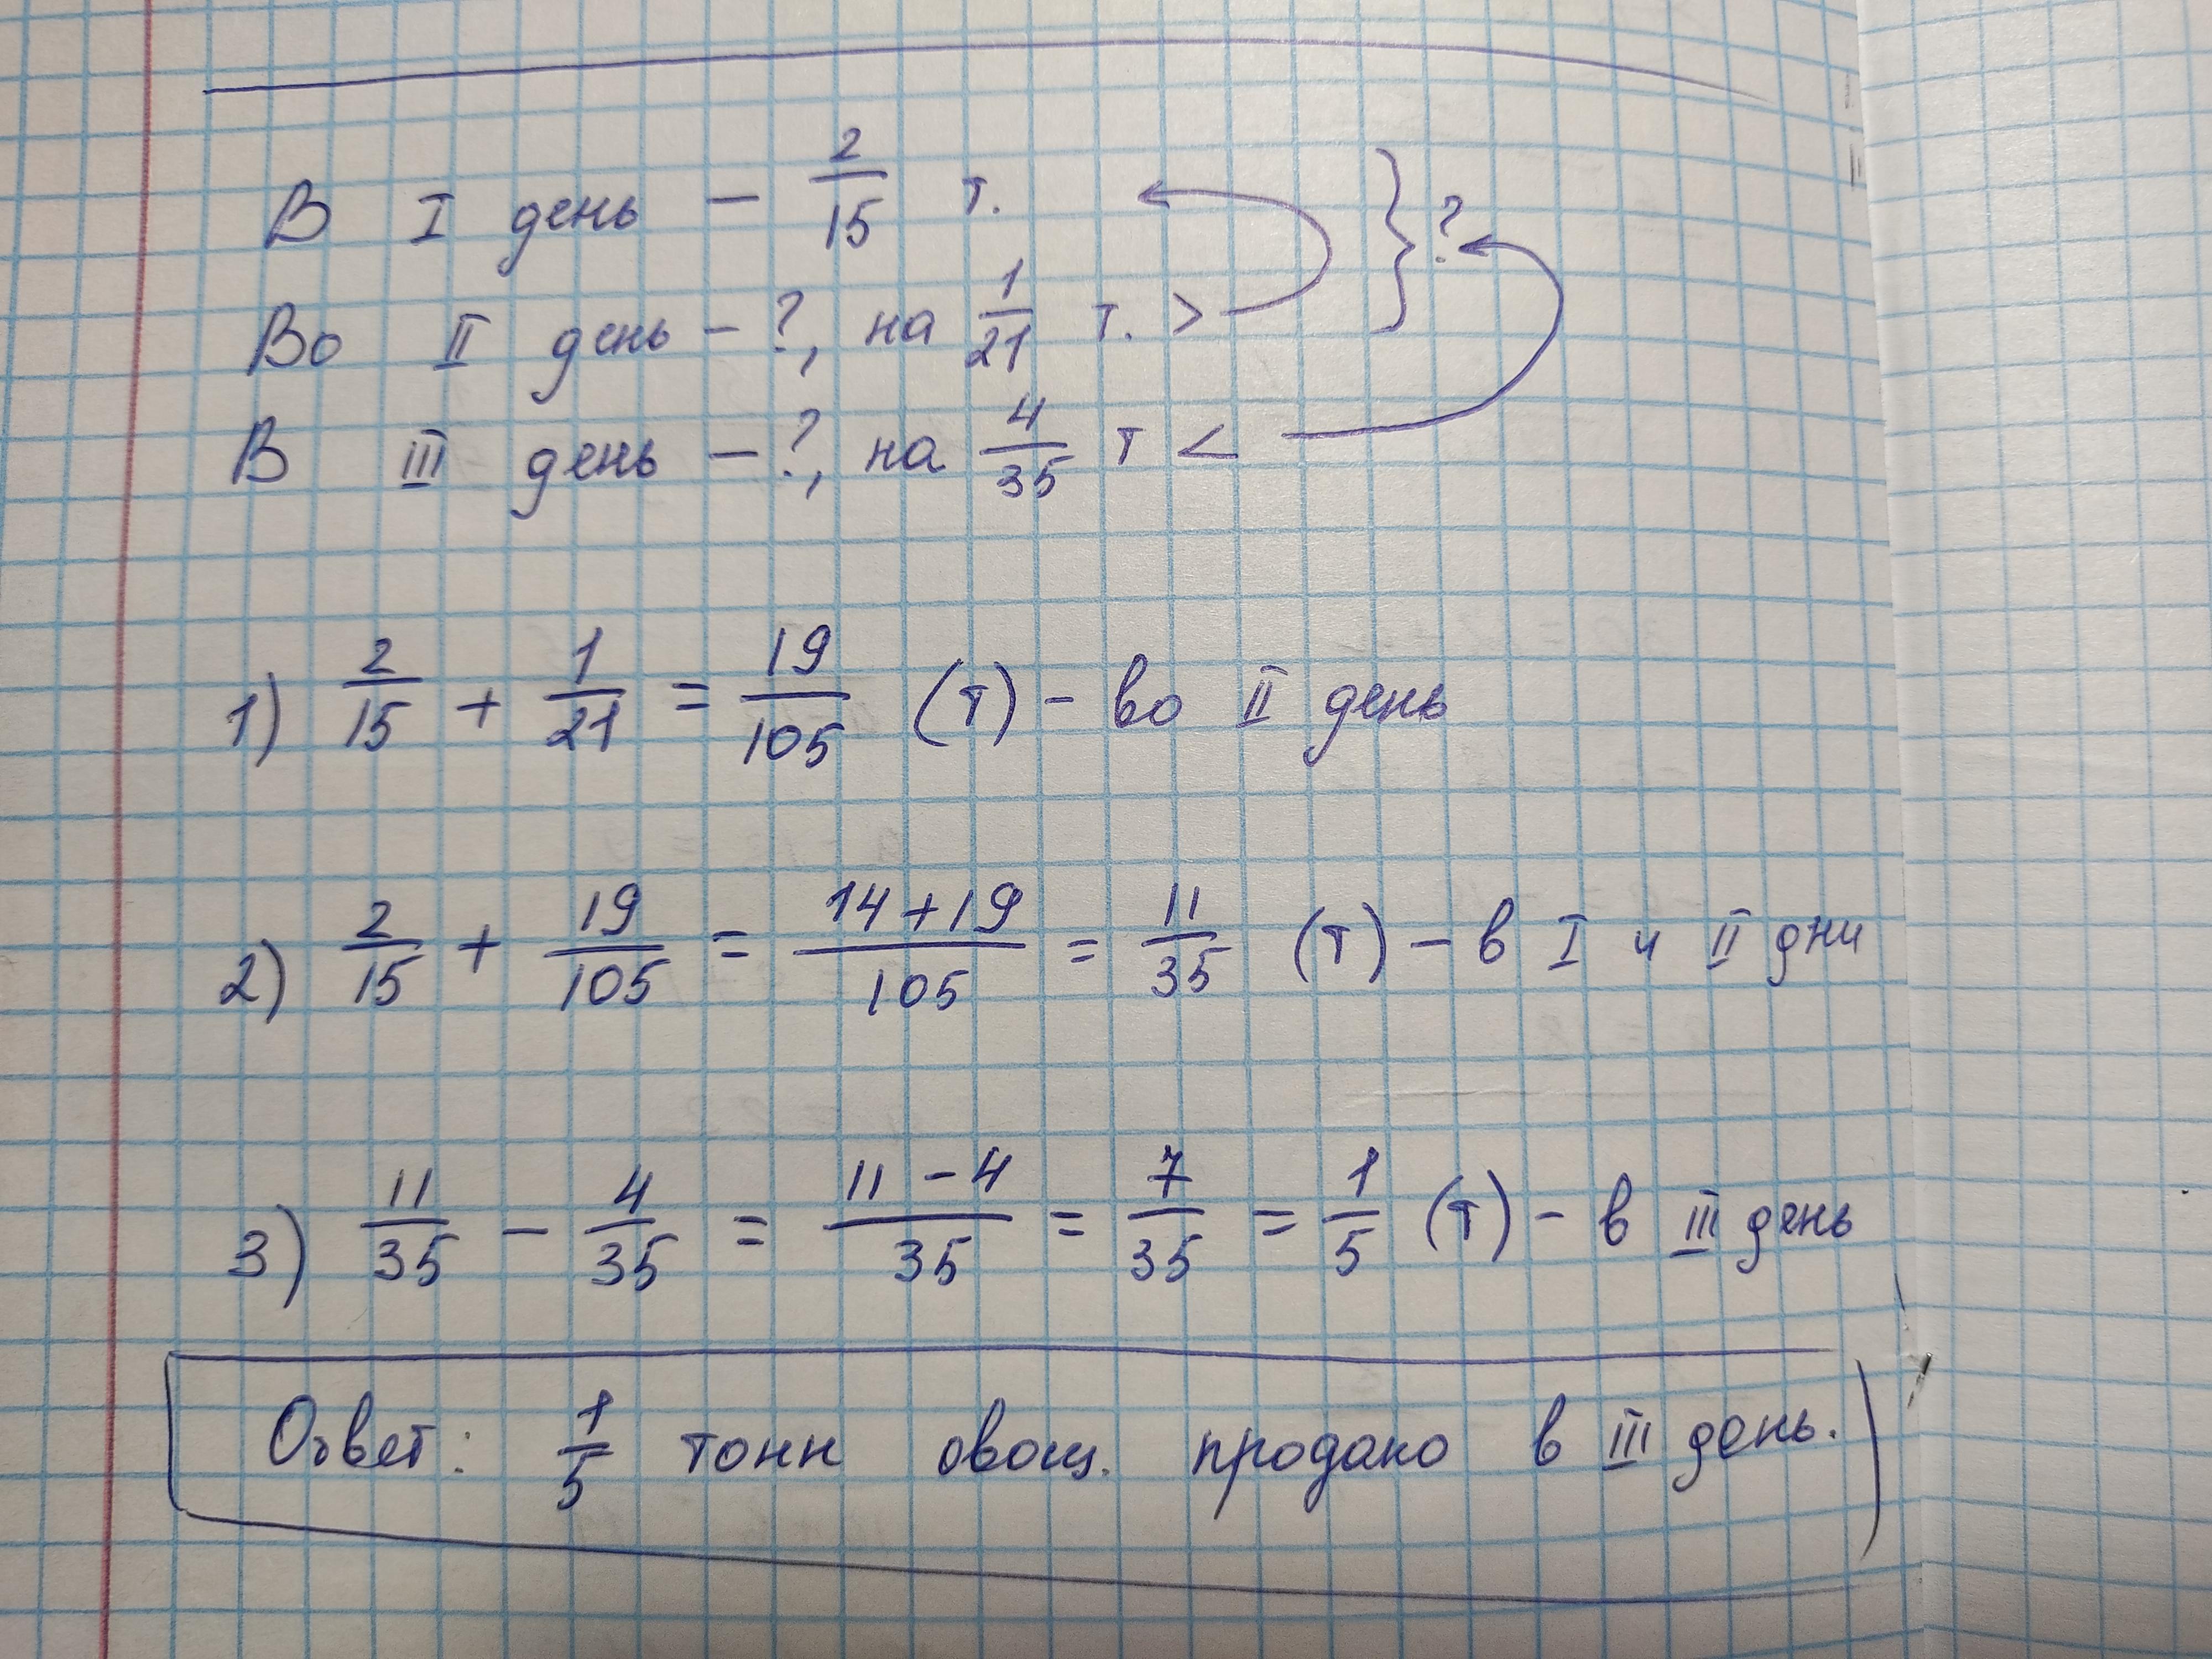 В I день – 2/15 т. } ?
Во II день – ?, на 1/21 т. >
В III день – ?, на 4/35 т <
1) 2/15 + 1/21 = 19/105 (т) – во II день
2) 2/15 + 19/105 = 14+19/105 = 11/35 (т) – в I и II дни
3) 11/35 – 4/35 = 11–4/35 = 7/35 = 1/5 (т) – в III день
Ответ: 1/5 тонн овощ. продано в III день.